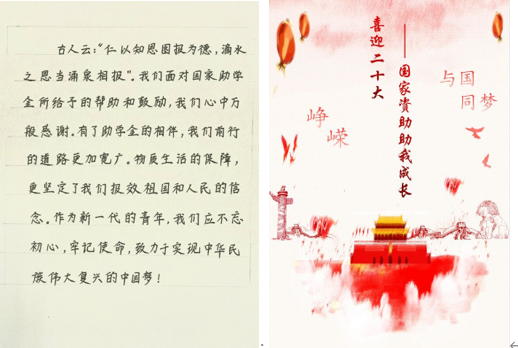 古人云：“仁以知恩图报为德，滴水
之恩当涌泉相报”。我们面对国家助学
金所给予的帮助和鼓励，我们心中万
般感谢。有了助学金的相伴，我们前行
的道路更加宽广。物质生活的保障，
更坚定了我们报效祖国和人民的信
念。作为新一代的青年，我们应不忘
初心，牢记使命，致力于实现中华民
族伟大复兴的中国梦！
喜迎二十大
——国家資助助我成长
与国
同梦
峥
嵘